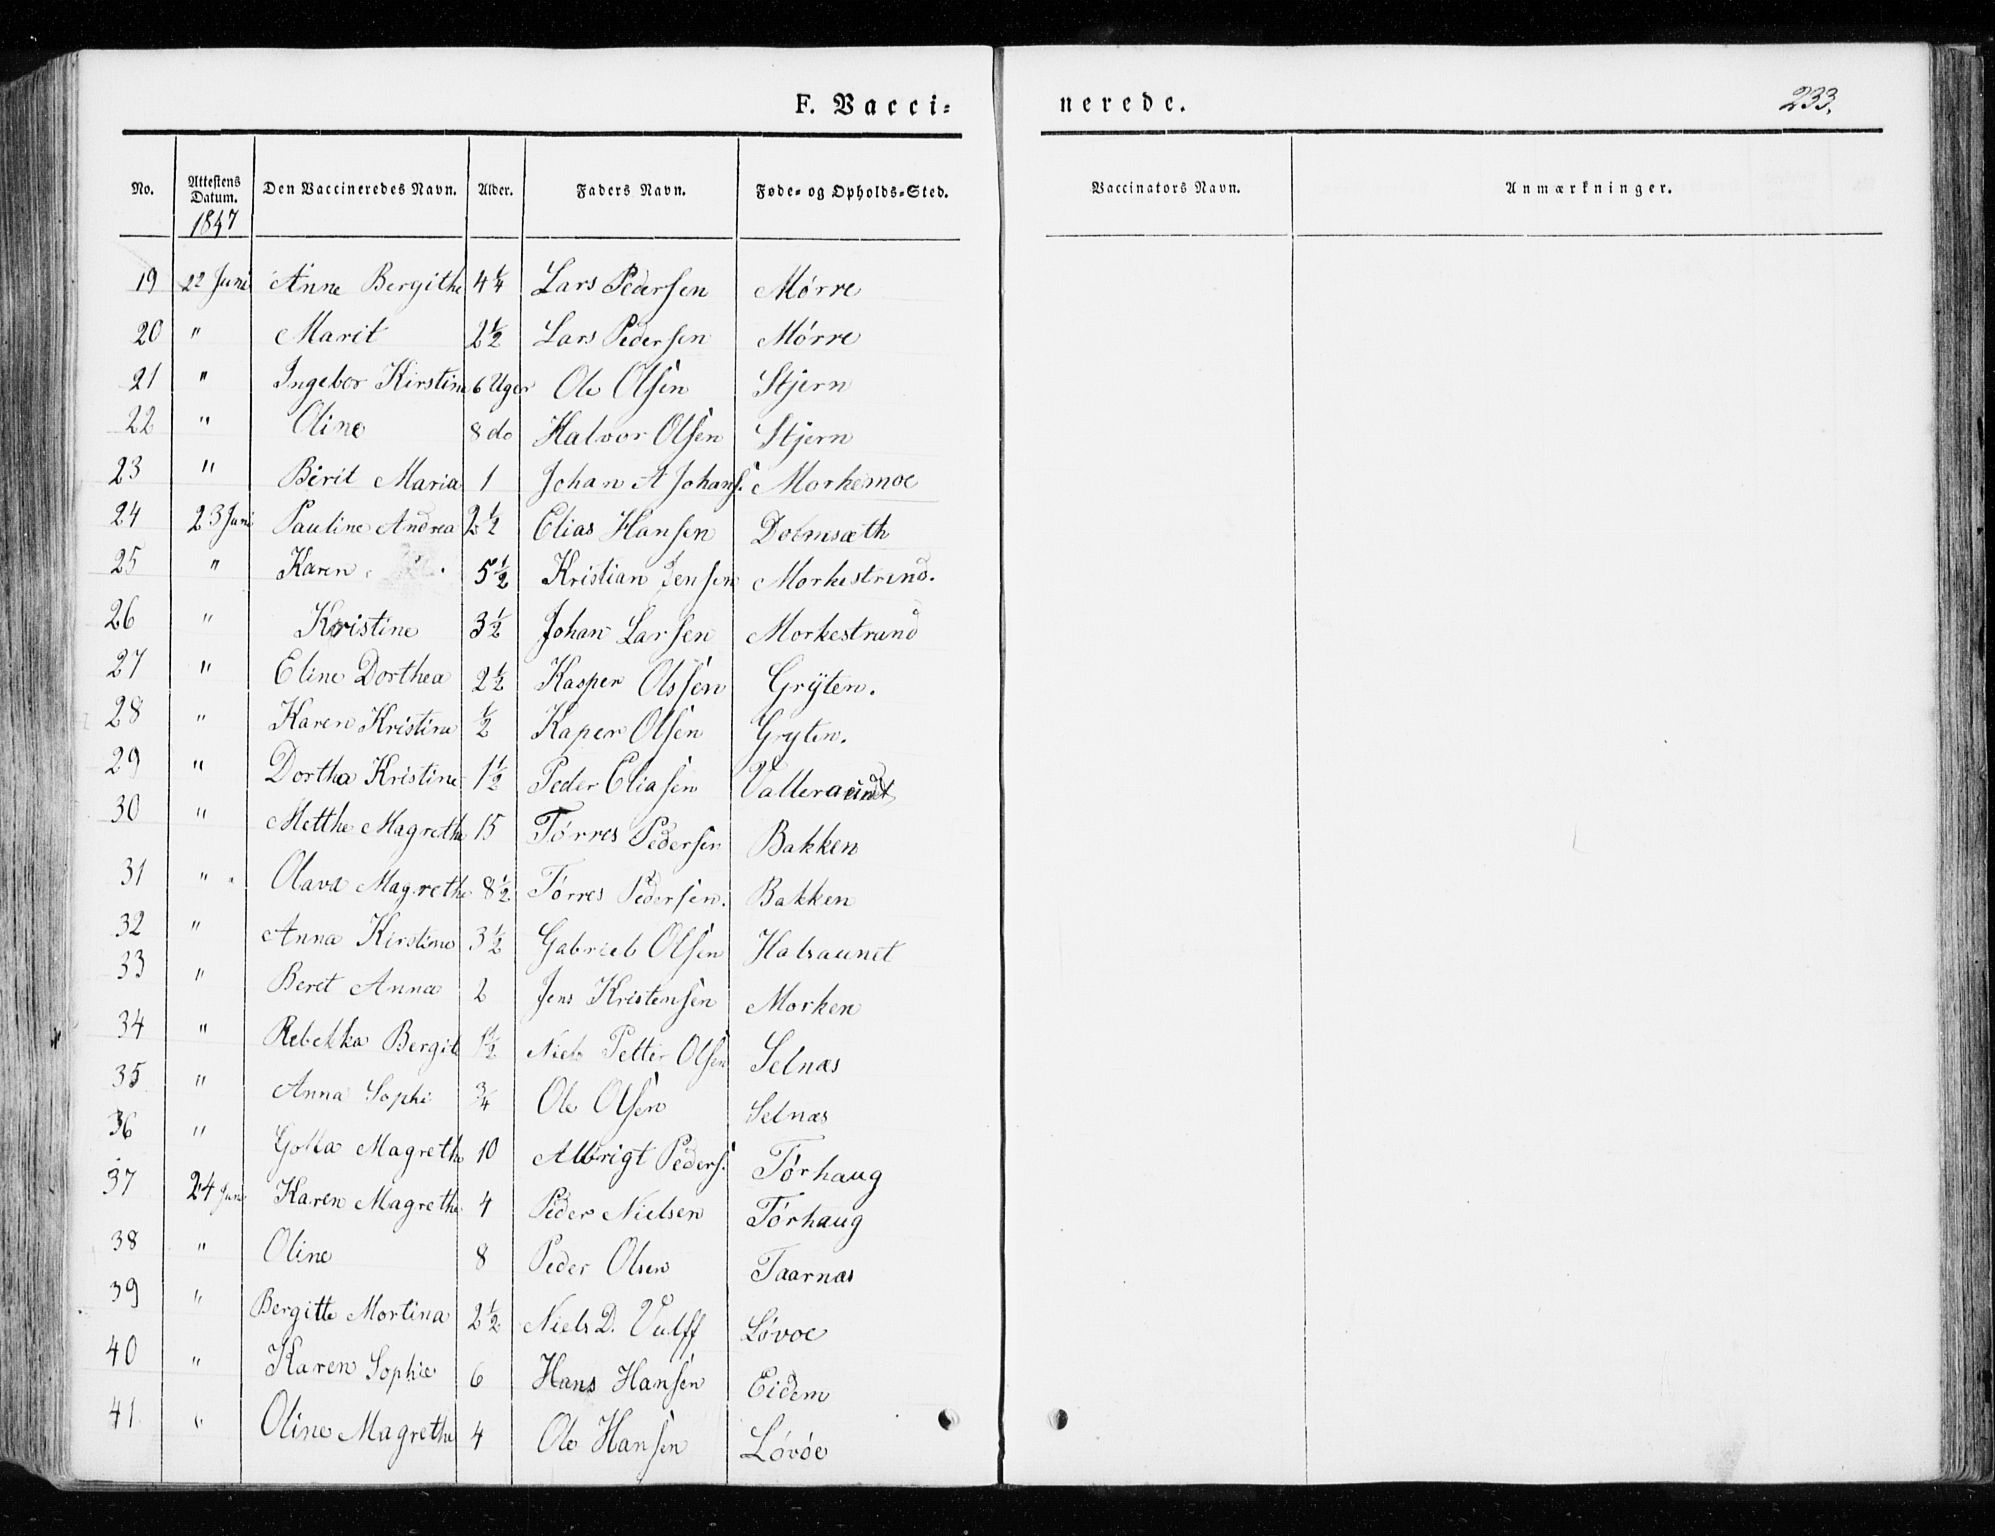 F. Vacci-
nerede.
233.
No. Attestens Datum. Den Vaccineredes Navn. Alder. Faders Navn. Føde- og Opholds-Sted. Vaccinators Navn. Anmærkninger.
1847
19 22 Juni Anne Bergithe 4¼ Lars Pedersen Mørre
20 " Marit 2½ Lars Pedersen Mørre
21 " Ingebor Kirstine 6 Uger Ole Olsen Stjern
22 " Oline 8 do Halvor Olsen Stjern
23 " Berit Maria 1 Johan A Johans. Morkemoe
24 23 Juni Pauline Andrea 2½ Elias Hansen
25 " Karen 5½ Kristian Jensen Morkestrand.
26 " Kristine 3½ Johan Larsen Morkestrand
27 " Eline Dorthea 2½ Kasper Olssen Grÿten.
28 " Karen Kristine ½ Kaper Olsen Gryten.
29 " Dorthea Kristine 1½ Peder Eliasen
30 " Metthe Magrethe 15 Tørres Pedersen Bakken
31 " Olava Magrethe 8½ Tørres Pedersen. Bakken
32 " Anna Kirstine 3½ Gabriel Olsen Halsaunet
33 " Beret Anna 2 Jens Kristensen Morken
34 " Rebekka Bergit 1½ Niels Petter Olsen Selnæs
35 " Anna Sophi ¾ Ole Olsen Selnæs
36 " Golla Magrethe 10 Albrigt Peders. Tørhaug
37 24 Juni Karen Magrethe 4 Peder Nielsen Tørhaug
38 " Oline 8 Peder Olsen Taarnæs
39 " Bergitte Mortina 2½ Niels D. Vulff Løvoe
40 " Karen Sophie 6 Hans Hansen Eidem
41. " Oline Magrethe 4 Ole Hansen Løvøe